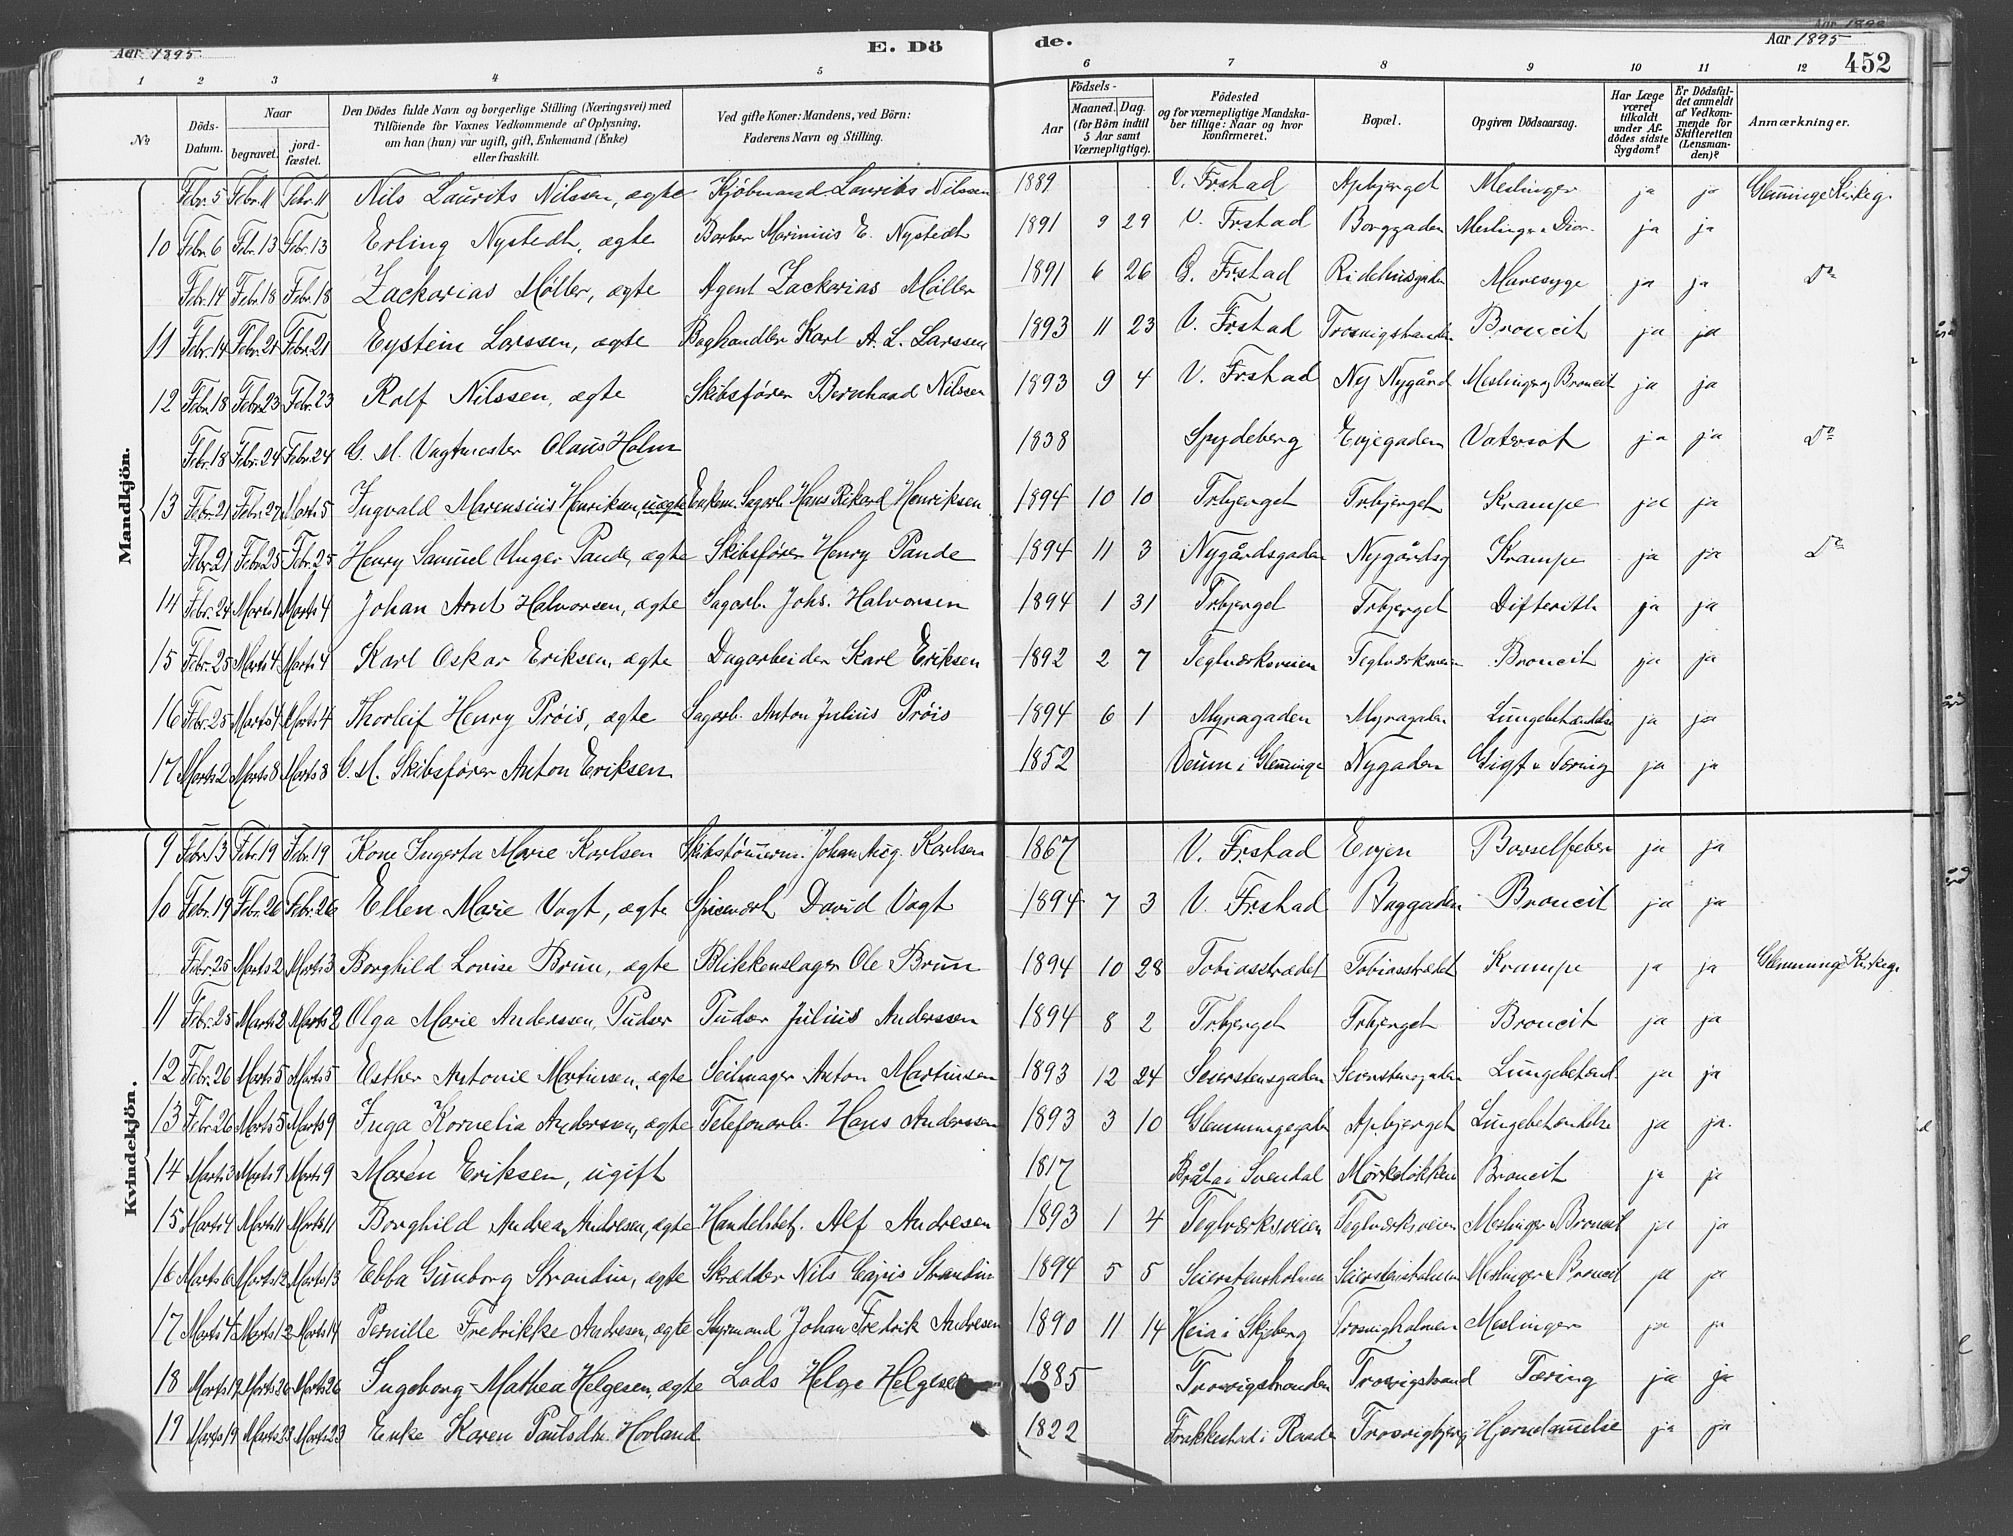 Aar 1895. E. Dö de. Aar 1895 452
1 2 3 4 5 6 7 8 9 10 11 12
No Döds-Datum. Naar begravet. jordfæstet. Den Dödes fulde Navn og borgerlige Stilling (Næringsvei) med Tilföiende for Voxnes Vedkommende af Oplysning, om han (hun) var ugift, gift, Enkemand (Enke) eller fraskilt. Ved gifte Koner: Mandens, ved Börn: Faderens Navn og Stilling. Födsels- Aar Maaned. Dag. (for Börn indtil 5 Aar samt Værnepligtige). Födested og for værnepligtige Mandskaber tillige: Naar og hvor konfirmeret. Bopæl. Opgiven Dödsaarsag. Har Læge været tilkaldt under Afdödes sidste Sygdom? Er Dödsfaldet anmeldt af Vedkommende for Skifteretten (Lensmanden)? Anmærkninger.
Mandkjön.
Febr. 5 Febr. 11 Febr. 11 Nils Laurits Nilssen, ægte Kjøbmand Laurits Nilssen 1889 V. Frstad Apbjerget Meslinger ja ja Glemminge Kirkeg.
10 Febr. 6 Febr. 13 Febr. 13 Erling Nystedt, ægte Barber Marinius E. Nystedt 1891 9 29 V. Frstad Borggaden Meslinger ja ja
Febr. 14 Febr. 18 Febr. 18 Zackarias Møller, ægte Agent Zackarias Møller 1891 6 26 G. Frstad Ridehusgaden Mavesyge ja ja Do
11 Febr. 14 Febr. 21 Febr. 21 Eystein Larssen, ægte Boghandler Karl A. L. Larssen 1893 11 23 V. Frstad Trosvigstranden Broncit ja ja
12 Febr. 18 Febr. 23 Febr. 23 Rolf Nilssen, ægte Skibsfører Bernhard Nilssen 1893 9 4 V. Frstad Ny Nygård Meslinger og Broncit ja ja
Febr. 18 Febr. 24 Febr. 24 G. M. Vagtmester Olaus Holm 1838 Spydeberg Evjegaden Vatersot ja ja Do
13 Febr. 21 Febr. 27 Marts 5 Ingvald Marensius Henriksen, uægte Enkem. Sagarb. Hans Rikard Henriksen 1894 10 10 Trbjerget Trbjerget Krampe ja ja
Febr. 21 Febr. 25 Febr. 25 Henry Samuel Unger Pande, ægte Skibsfører Henry Pande 1894 11 3 Nygårdsgaden Nygårdsg Krampe ja ja Do
14 Febr. 24 Marts 1 Marts 4 Johan Arnt Halvorsen, ægte Sagarb. Johs. Halvorsen 1894 1 31 Trbjerget Trbjerget Difterith ja ja
15 Febr. 25 Marts 4 Marts 4 Karl Oskar Eriksen, ægte Dagarbeider Karl Eriksen 1892 2 7 Teglværksveien Teglværksveien Broncit ja ja
16 Febr. 25 Marts 4 Marts 4 Thorleif Henry Prøis, ægte Sagarb. Anton Julius Prøis 1894 6 1 Myragaden Myragaden Lungebetændelse ja ja
17 Marts 2 Marts 8 Marts 8 G. M. Skibsfører Anton Eriksen 1852 Veum i Glemminge Nygaden Gigt & Tæring ja ja
Kvindekjön.
9 Febr. 13 Febr. 19 Febr. 19 Kone Ingerta Marie Karlsen Skibstømerm. Johan Aug. Karlsen 1867 V. Frstad Evjen Barselfeber ja ja
10 Febr. 19 Febr. 26 Febr. 26 Ellen Marie Vogt, ægte David Vogt 1894 7 3 V. Frstad Baggaden Broncit ja ja
Febr. 25 Marts 2 Marts 3 Borghild Lovise Brun, ægte Blikkenslager Ole Brun 1894 10 28 Tobiasstrædet Tobiasstrædet Krampe ja ja Glemminge Kirkeg.
11 Febr. 25 Marts 2 Marts 2 Olga Marie Anderssen, Pudser Pudser Julius Anderssen 1894 8 2 Trbjerget Trbjerget Broncit ja ja
12 Febr. 26 Marts 5 Marts 5 Esther Antonie Martinsen, ægte Seilmager Anton Martinsen 1893 12 24 Seierstensgaden Seierstensgaden Lungebetænd. ja ja
13 Febr. 26 Marts 5 Marts 9 Inga Kornelia Anderssen, ægte Telefonarb. Hans Anderssen 1893 3 10 Glemmingegaden Apbjerget Lungebetændelse ja ja.
14 Marts 3 Marts 9 Marts 9 Maren Eriksen, ugift 1817 Bråta i Svendal Mørkeløkken Broncit ja ja
15 Marts 4 Marts 11 Marts 11 Borghild Andrea Andresen, ægte Handelsbet. Alf Andresen 1893 1 4 Teglværksveien Teglværksveien Meslinger & Broncit ja ja
16 Marts 6 Marts 12 Marts 13 Ebba Gunborg Strandin, ægte Skrædder Nils Strandin 1894 5 5 Seierstensholmen Seierstensholmen Meslinger & Broncit ja ja
17 Marts 7 Marts 12 Marts 14 Pernille Fredrikke Andresen, ægte Styrmand Johan Fredrik Andresen 1890 11 14 Heia i Skjeberg Trosvigholmen Meslinger ja ja
18 Marts 19 Marts 26 Marts 26 Ingeborg Mathea Helgesen, ægte Lods Helge Helgesen 1885 Trosvigstranden Trosvigstrand Tæring ja ja
19 Marts 19 Marts 23 Marts 23 Enke Karen Paulsdtr. Hovland 1822 Frukkestad i Raade Trosvigbjerg Hjerndamelse ja ja